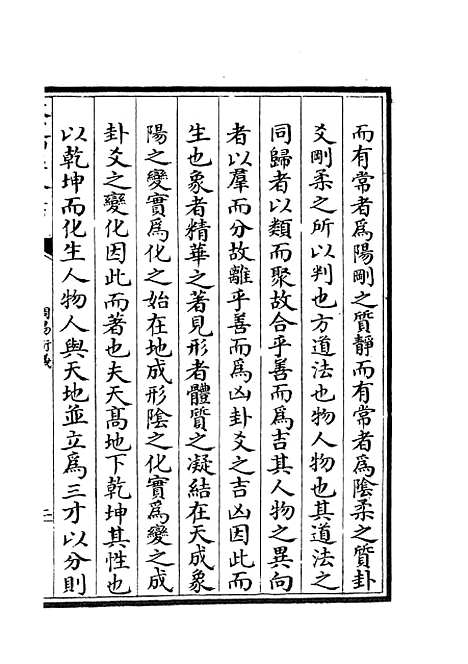 而有常者爲陽剛之質靜而有常者爲陰柔之質卦
爻剛柔之所以判也方道法也物人物也其道法之
同歸者以類而聚故合乎善而爲吉其人物之異向
者以羣而分故離乎善而爲凶卦爻之吉凶因此而
生也象者精華之著見形者體質之凝結在天成象
陽之變實爲化之始在地成形陰之化實爲變之成
卦爻之變化因此而著也夫天髙地下乾坤其性也
以乾坤而化生人物人與天地並立爲三才以分則
周易衍義
二